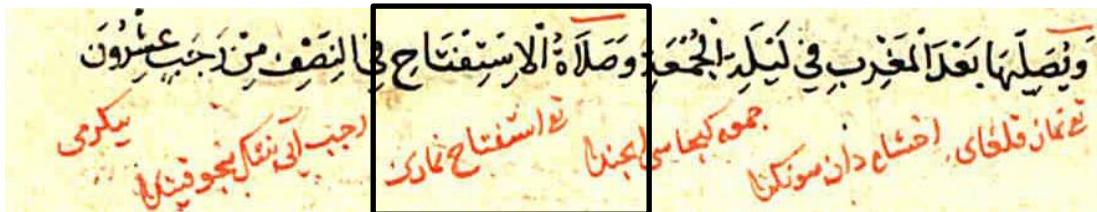 وَيُصَلِّيهَا بَعْدَ الْمَغْرِبِ فِي لَيْلَةِ الْجُمْعَةِ وَصَلَاةُ الْاِسْتِفْتَاحِ فِي النِّصْفِ مِنْ رَجَبٍ عِشْرُونَ
نماز قلغاى اخشام دان سونكندا جمعه كيجاسى استفتاح نمازى رجب آى ننك ييكرمى